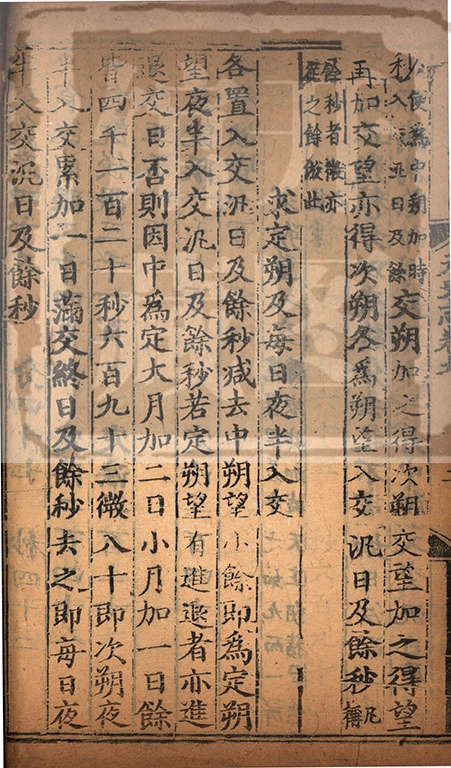 便為中朔加時
秒入汎日及餘
交朔加之得次朔交望加之得望
再加交望亦得次朔各為朔望入交汎日及餘秒凡稱
餘秒者微亦
從之餘倣此
求定朔及每日夜半入交
各置入交汎日及餘秒减去中朔望小餘即為定朔
望夜半入交汎日及餘秒若定朔望有進退者亦進
退交日否則因中為定大月加二日小月加一日餘
皆四千一百二十秒六百九十三微八十即次朔夜
半入交累加一日滿交終日及餘秒去之即每日夜
半入交汎日及餘秒